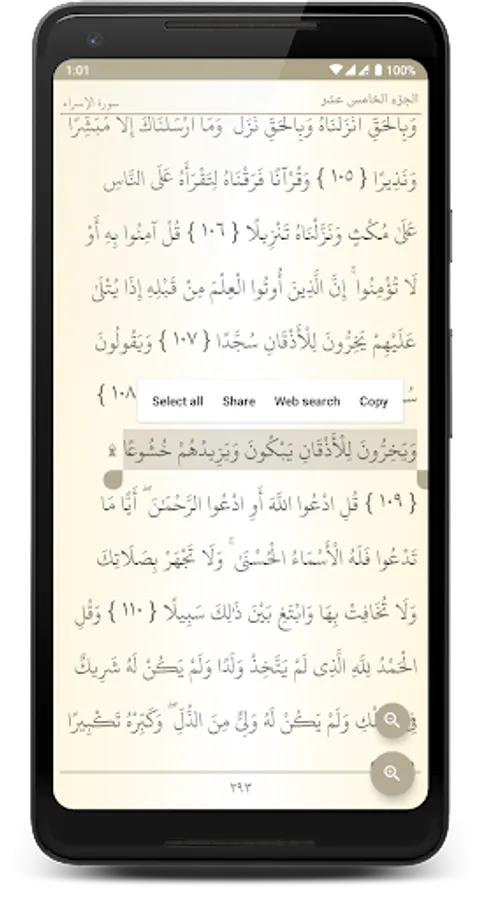 1:01 100%
الجزء الخامس عشر سورة الإسراء
وَبِالْحَقِّ أَنْزَلْنَاهُ وَبِالْحَقِّ نَزَلَ وَمَا أَرْسَلْنَاكَ إِلَّا مُبَشِّرًا
وَنَذِيرًا { ١٠٥ } وَقُرْآنًا فَرَقْنَاهُ لِتَقْرَأَهُ عَلَى النَّاسِ
عَلَىٰ مُكْثٍ وَنَزَّلْنَاهُ تَنْزِيلًا { ١٠٦ } قُلْ آمِنُوا بِهِ أَوْ
لَا تُؤْمِنُوا ۚ إِنَّ الَّذِينَ أُوتُوا الْعِلْمَ مِنْ قَبْلِهِ إِذَا يُتْلَىٰ
عَلَيْهِمْ يَخِرُّونَ لِلْأَذْقَانِ سُجَّدًا { ١٠٧ } وَيَقُولُونَ
١٠٨ }
Select all Share Web search Copy
وَيَخِرُّونَ لِلْأَذْقَانِ يَبْكُونَ وَيَزِيدُهُمْ خُشُوعًا ۩
{ ١٠٩ } قُلِ ادْعُوا اللَّهَ أَوِ ادْعُوا الرَّحْمَٰنَ ۖ أَيًّا مَا
تَدْعُوا فَلَهُ الْأَسْمَاءُ الْحُسْنَىٰ ۚ وَلَا تَجْهَرْ بِصَلَاتِكَ
وَلَا تُخَافِتْ بِهَا وَابْتَغِ بَيْنَ ذَٰلِكَ سَبِيلًا { ١١٠ } وَقُلِ
الْحَمْدُ لِلَّهِ الَّذِي لَمْ يَتَّخِذْ وَلَدًا وَلَمْ يَكُنْ لَهُ شَرِيكٌ
فِي وَلَمْ يَكُنْ لَهُ وَلِيٌّ مِنَ الذُّلِّ ۖ وَكَبِّرْهُ تَكْبِيرًا
٢٩٣